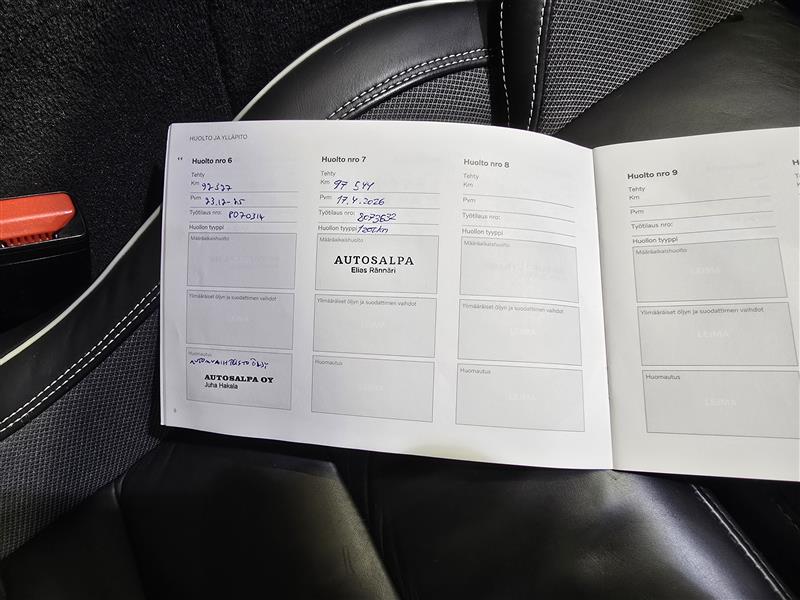 HUOLTO JA YLLÄPITO
Huolto nro 6
Tehty
Km 92527
Pvm 23.12-25
Työtilaus nro: 8070314
Huollon tyyppi
Määräaikaishuolto
Ylimääräiset öljyn ja suodattimen vaihdot
Huomautus
AUTOSALPA OY
Juha Hakala
Huolto nro 7
Tehty
Km 97 544
Pvm 17.4.2026
Työtilaus nro: 8075632
Huollon tyyppi
Määräaikaishuolto
AUTOSALPA
Elias Rännäri
Ylimääräiset öljyn ja suodattimen vaihdot
LEIMA
Huomautus
LEIMA
Huolto nro 8
Tehty
Km
Pvm
Työtilaus nro:
Huollon tyyppi
Määräaikaishuolto
Ylimääräiset öljyn ja suodattimen vaihdot
LEIMA
Huomautus
LEIMA
Huolto nro 9
Tehty
Km
Pvm
Työtilaus nro:
Huollon tyyppi
Määräaikaishuolto
LEIMA
Ylimääräiset öljyn ja suodattimen vaihdot
LEIMA
Huomautus
LEIMA